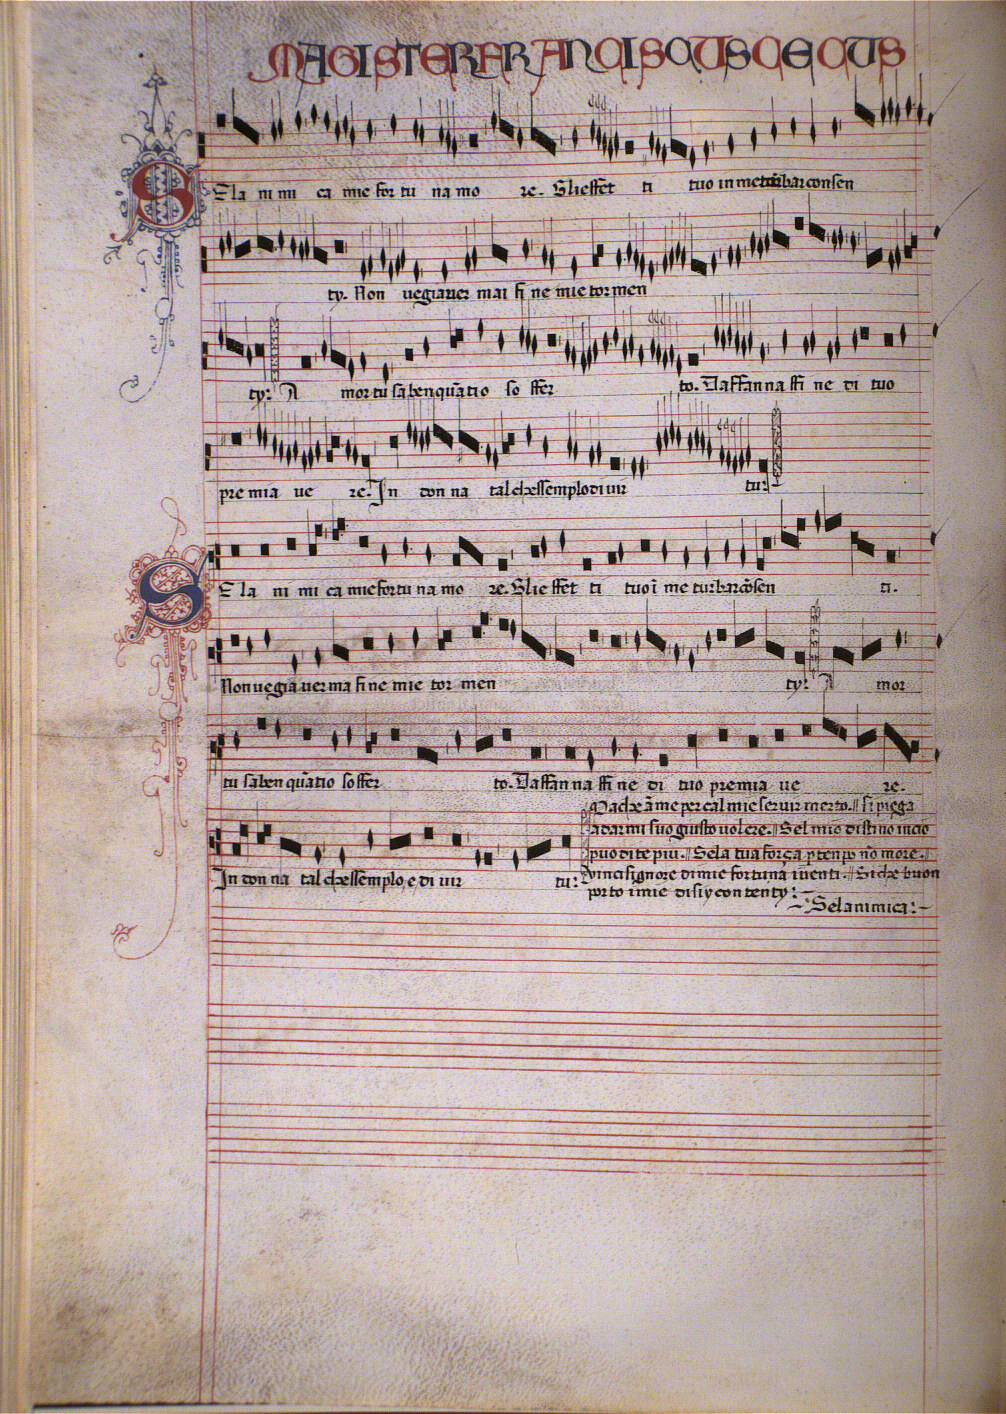 MAGISTER FRANCISCUS CECUS
Se la ni mi ca mie for tu na mo re. Glieffet ti tuo in me turbar consen
ty. Non vegia ver mai fi ne mie tor men
ty: A mor tu sa ben quãtio so ffer to. Daffan na ffi ne di tuo
pre mia ve re. In don na tal chessemplo di vir tu:
Se la ni mi ca mie fortu na mo re. Glie ffet ti tuo ĩ me turbar cõsen ti.
Non vegia ver ma fi ne mie tor men ty: A mor
tu sa ben quãtio soffer to. Daffan na ffi ne di tuo premia ve re.
In don na tal chessemplo e di vir tu:
Mache ã me per cal mie servir merto. si piega
adarmi suo giusto volere. Sel mio distino inicio
puo di te piu. Se la tua força p tenpo nõ more.
vinci signore di mie fortuna iventi. Siche buon
porto i mie disiy contenty:
Se la nimica: